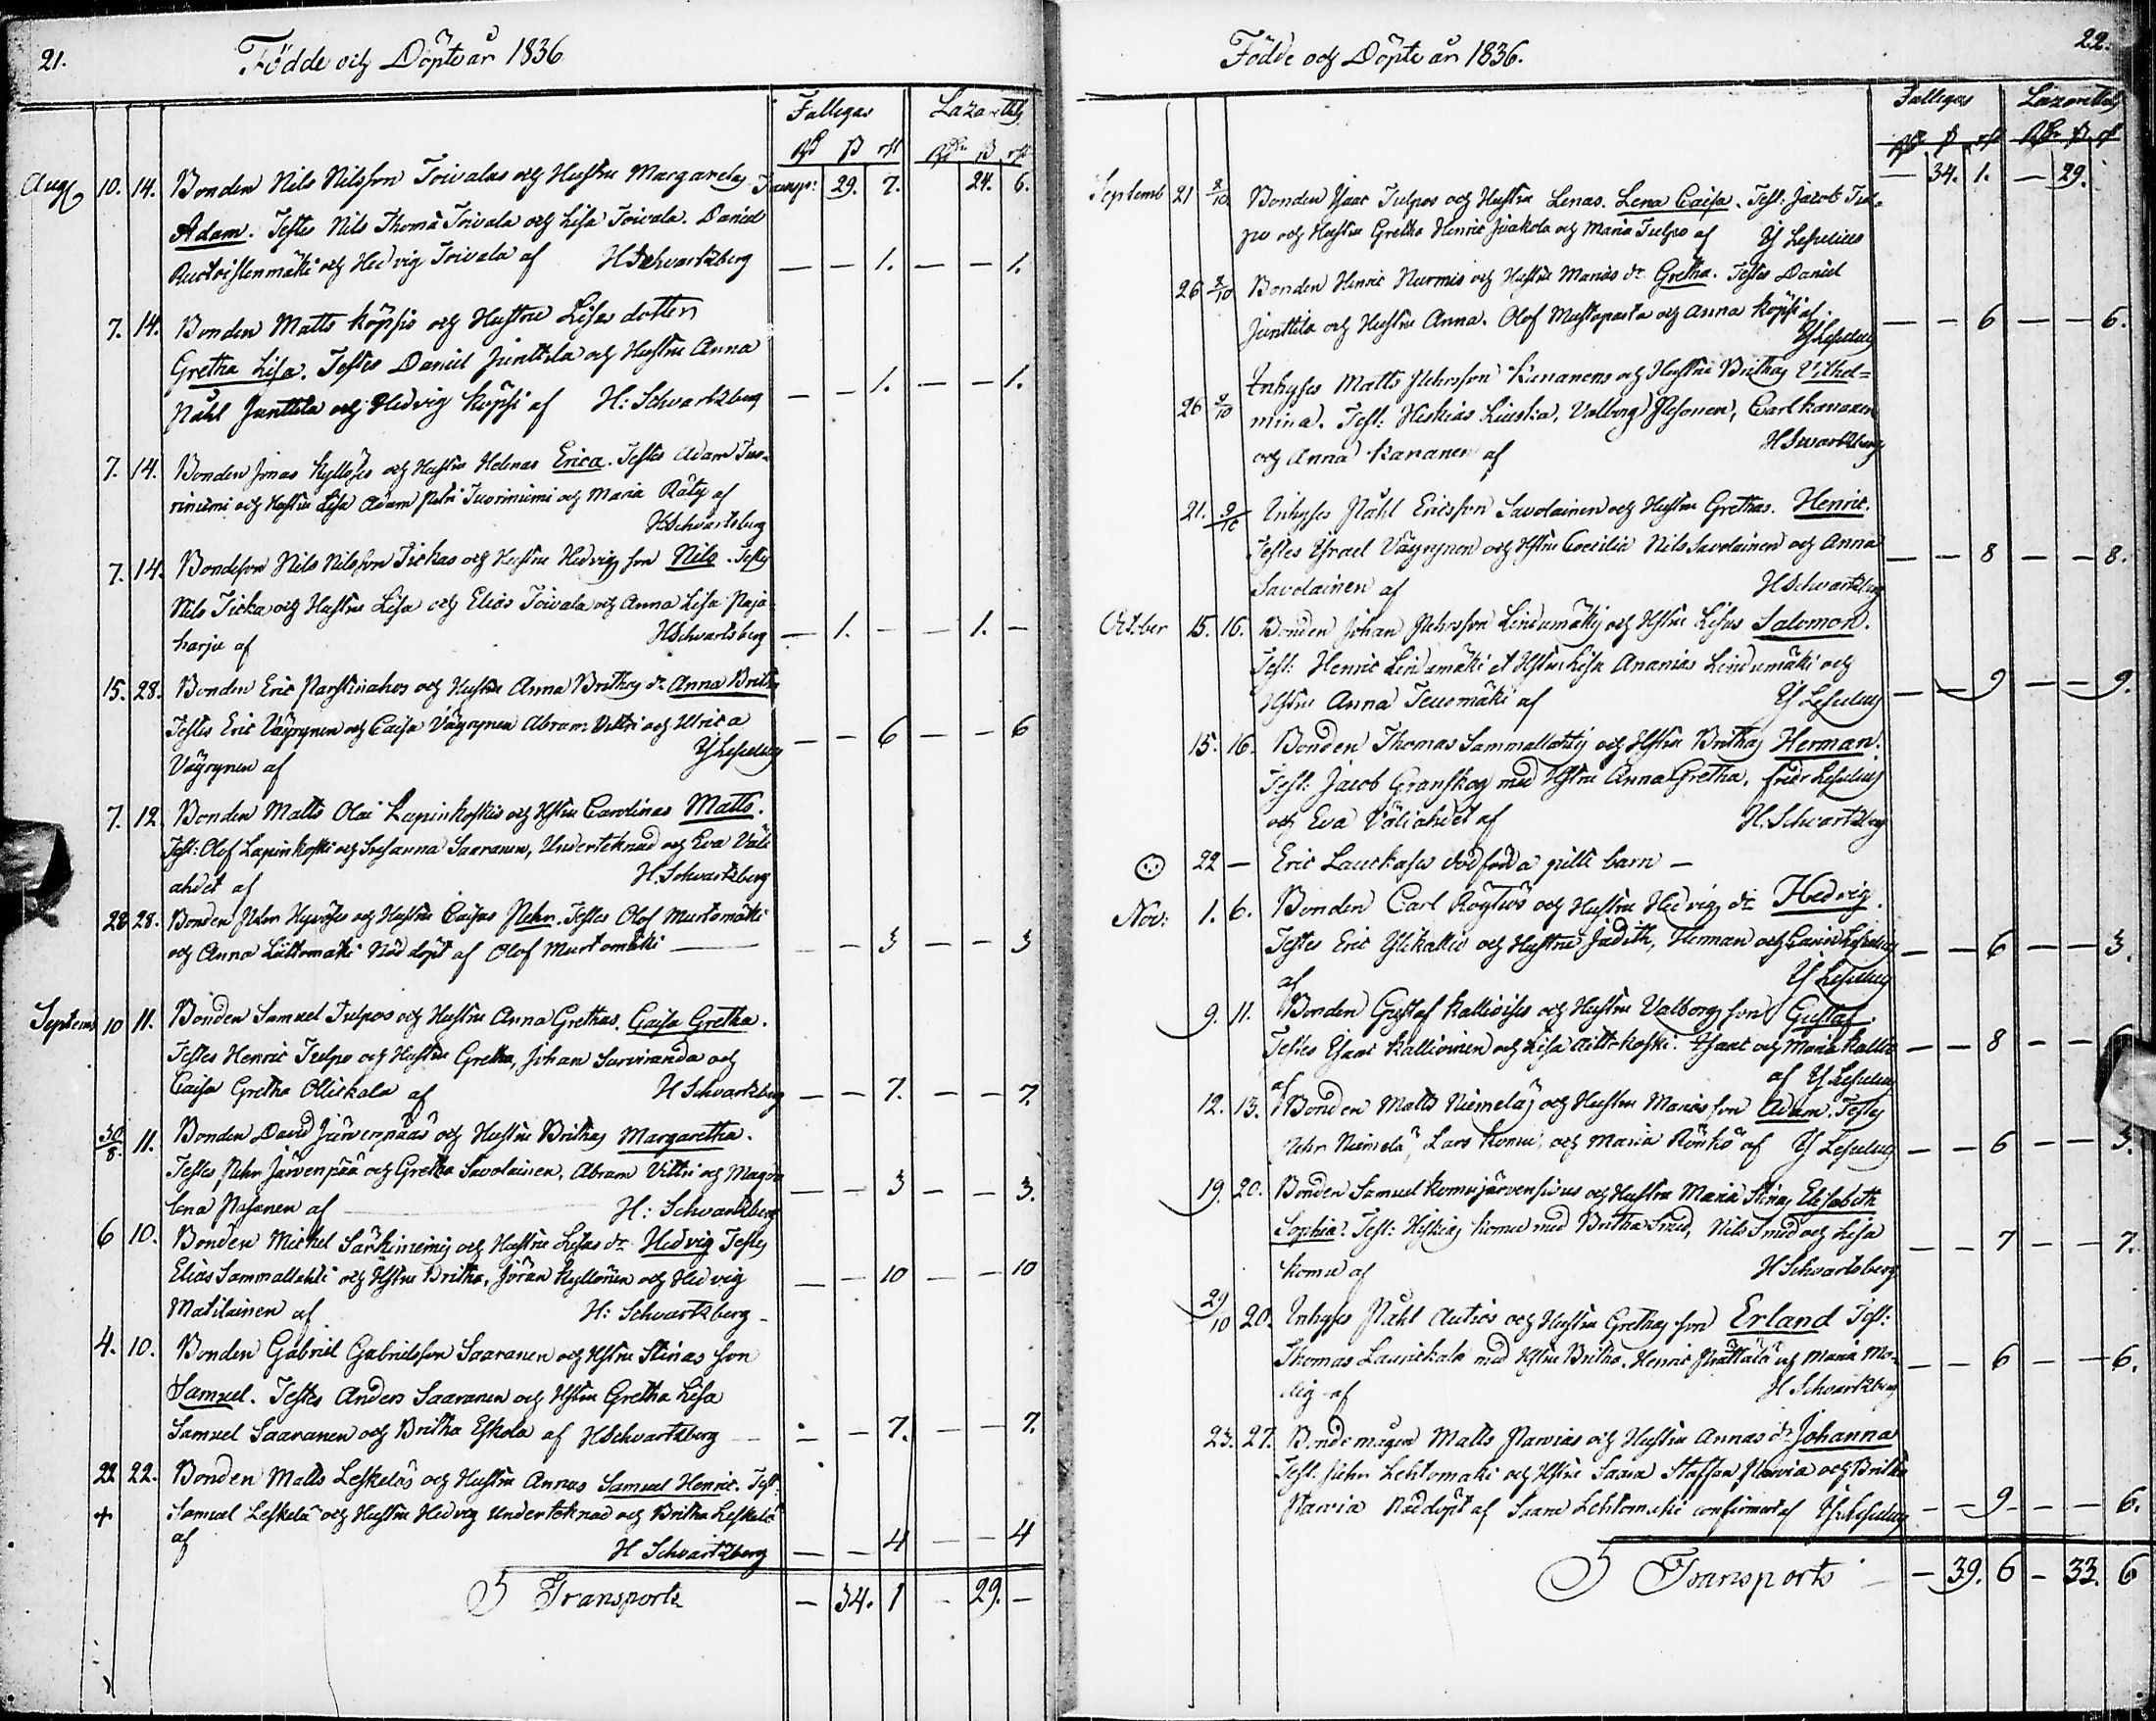 21.
Födde och Döpte år 1836
Fattigas Lazarethz
Rd ß rst Rd ß rst
Aug 10. 14. Bonden Nils Nilsson Toivalas och Hustru Margaretas Transp: 29. 7. 24. 6.
Adam. Testes Nils Thoma Toivala och Lisa Toivala. Daniel
och Hedvig Toivala af H Schvartzberg — — 1. — — 1.
7. 14. Bonden Matts Köpsis och Hustru Lisas dotter
Gretha Lisa. Testes Daniel Junttila och Hustru Anna
Påhl Junttila och Hedvig Köpsi af H: Schvartzberg — — 1. — — 1.
7. 14. Bonden Jonas Kyllöses och Hustru Helenas Erica. Testes Adam Tuo-
riniemi och Hustru Lisa Adam Petri Tuoriniemi och Maria Räty af
H Schvartzberg
7. 14. Bondeson Nils Nilsson Tickas och Hustru Hedvigs son Nils. Testes
Nils Ticka och Hustru Lisa och Elias Toivala och Anna Lisa Paja
harju af H Schvartsberg — 1. — — 1. —
15. 28. Bonden Eric Parstinahos och Hustru Anna Brithas dr Anna Britha
Testes Eric Väyrynen och Caisa Väyrynen Abram Vittri och Ulrica
Väyrynen af Y Leseleus — — 6 — — 6
7. 12. Bonden Matts Olai Lapinkoskis och Hstru Carolinas Matts.
Test: Olof Lapinkoski och Susanna Saaranen, Undertecknad och Eva Väli
ahdet af H. Schvartzberg
28 28. Bonden Petter Hyväses och Hustru Caisas Pehr. Testes Olof Murtomäki
och Anna Lättomäki Nöd döpt af Olof Murtomäki — — — 3 — — 3
Septemb 10 11. Bonden Samuel Tulpos och Hustru Anna Grethas. Caisa Gretha.
Testes Henric Tulpo och Hustru Gretha, Johan Sarviranda och
Caisa Gretha Ollickala af H Schvartzberg — — 7. — — 7.
30/8. 11. Bonden David Järvenpääs och Hustru Brithas Margaretha.
Testes Pehr Järvenpää och Gretha Savolainen, Abram Vittri och Magda
lena Pasanen af H: Schvartzberg — — 3 — — 3.
6 10. Bonden Michel Särkiniemis och Hustru Lisas dr Hedvig Testes
Elias Sammallahti och Hstru Britha, Jöran Kyllönen och Hedvig
Matilainen af H: Schvartzberg — — 10 — — 10
4. 10. Bonden Gabriel Gabrielsson Saaranen och Hstru Stinas son
Samuel. Testes Anders Saaranen och Hstru Gretha Lisa
Samuel Saaranen och Britha Eskola af H Schvartzberg — — 7. — — 7.
22 22. Bonden Matts Leskeläs och Hustru Annas Samuel Henric. Test:
+ Samuel Leskelä och Hustru Hedvig undertecknad och Britha Leskelä
af H Schvartzberg — — 4 — — 4
Transports — 34. 1 — 29. —
22.
Födde och Döpte år 1836.
Fattigas Lazarethz
Rd ß rst Rd ß rst
— 34. 1. — 29.
Septemb 21 2/10 Bonden Isaac Tulpos och Hustru Lenas. Lena Caisa. Test: Jacob Tul-
po och Hustru Gretha Henric Juakola och Maria Tulpo af Y Leseleus
26 2/10 Bonden Henric Nurmis och Hustru Marias dr Gretha. Testes Daniel
Junttila och Hustru Anna. Olof Mustaparta och Anna Köpsi af. — — 6 — — 6.
Y Leseleus
26 2/10 Inhyses Matts Pehrsson Kananens och Hustru Brithas Vilhel-
mina. Test: Hiskias Liuska, Valborg Pesonen, Carl Kananen
och Anna Kananen af H Svartzberg
21. 9/10 Inhyses Påhl Ericsson Savolainen och Hustru Grethas. Henric.
Testes Israel Väyrynen och Hstru Coecilia Nils Savolainen och Anna
Savolainen af H Schvartzberg — — 8 — — 8.
October 15. 16. Bonden Johan Pehrsson Lindumäkis och Hstru Lisas Salomon.
Test: Henric Lindumäki et Hstru Lisa Ananias Lindumäki och
Hstru Anna Teuomäki af Y Leseleus — — 9 — — 9.
15. 16. Bonden Thomas Sammallahtis och Hstru Brithas Herman.
Test: Jacob Granskog med Hstru Anna Gretha, Fredr Leseleus
och Eva Väliahdet af H. Schvartzberg
22 — Eric Lauckases dödfödda pilti barn —
Nov: 1. 6. Bonden Carl Röytiös och Hustru Hedvigs dr Hedvig.
Testes Eric Ylikallio och Hustru Judith, Herman och Carin Leseleus — — 6 — — 3.
af Y Leseleus
9. 11. Bonden Gustaf Kallioises och Hustru Valborgs son Gustaf.
Testes Isaac Kallioinen och Lisa Aittokoski. Isaac och Maria Kallio — — 8 — —
af Y Leseleus
12. 13. Bonden Matts Niemeläs och Hustru Marias son Adam. Testes
Pehr Niemelä, Lars Komu, och Maria Rönkö af Y Leseleus — — 6 — — 3.
19. 20. Bonden Samuel Komujärvensivus och Hustru Maria Stinas Elisabeth
Sophia. Test: Hiskias Komu med Britha Smed, Nils Smed och Lisa
Komu af H Schvartsberg — — 7 — — 7.
29/10 20. Inhyses Påhl Autios och Hustru Grethas son Erland Test:
Thomas Laurickala med Hstru Britha. Henric Prättälä och Maria Mo-
dig af H Schvartzberg — — 6 — — 6.
23. 27. Bondemågen Matts Pawias och Hustru Annas dr Johanna
Test: Pehr Lehtomäki och Hstru Saara Staffan Pawia och Britha
Pawia Nöddöpt af Saara Lehtomäki confirmerat af Y Leseleus — — 9 — — 6.
Transports — 39. 6 — 33. 6